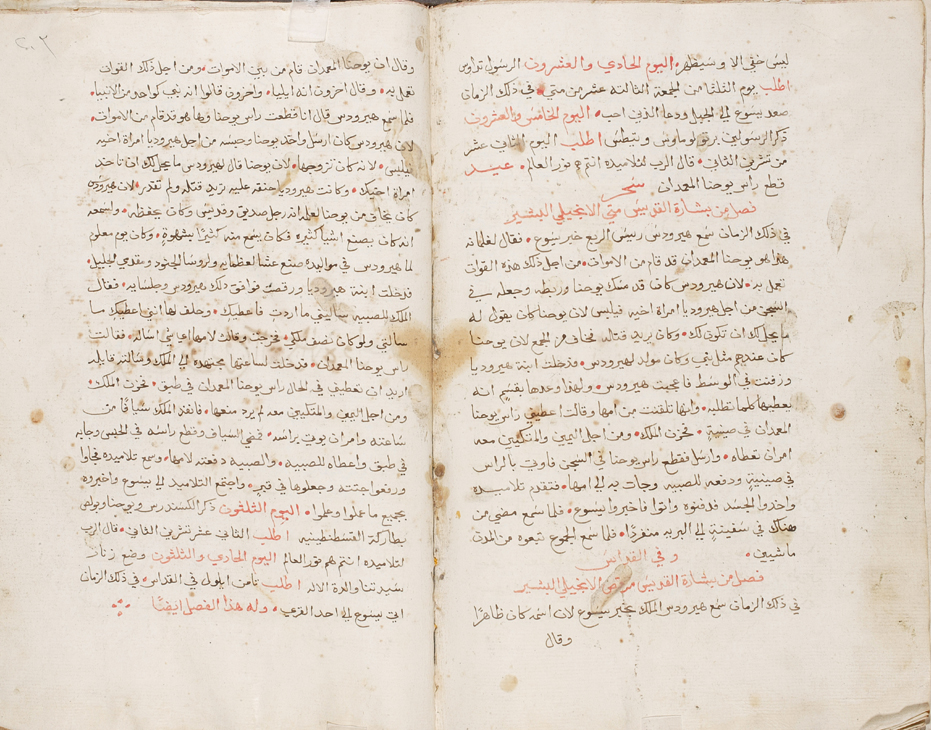 ليس خفي الا وسيظهر. اليوم الحادي والعشرون الرسول تداوس
اطلب يوم الثلثا من الجمعة الثالثة عشر من متي. في ذلك الزمان
صعد يسوع الي الجبل ودعا الذين احب. اليوم الخامس والعشرون
ذكر الرسولين برتولوماوس وتيطس اطلب اليوم الثاني عشر
من تشرين الثاني. قال الرب لتلاميذه انتم نور العالم. عيد
قطع راس يوحنا المعمدان سحر
فصل من بشارة القديس متي الانجيلي البشير
في ذلك الزمان سمع هيرودس رييس الربع خبر يسوع. فقال لغلمانه
هذا هو يوحنا المعمدان قد قام من الاموات. من اجل ذلك هذه القوات
تعمل به. لان هيرودس كان قد مسك يوحنا وربطه وجعله في
السجن من اجل هيروديا امراة اخيه فيلبس لان يوحنا كان يقول له
ما يحل لك ان تكون لك. وكان يريد قتله فخاف من الجمع لان يوحنا
كان عندهم مثل نبي وكان مولد لهيرودس. فدخلت ابنة هيروديا
ورقصت في الوسط فاعجبت هيرودس. ولهذا وعدها بقسم انه
يعطيها كلما تطلبه. وانها تلقنت من امها وقالت اعطيني راس يوحنا
المعمدان في صينية. فحزن الملك. ومن اجل اليمين والمتكيين معه
امر ان تعطاه. وارسل فقطع راس يوحنا في السجن فاوتي بالراس
في صينية ودفعه للصبية وجات به الي امها. فتقدم تلاميذه
واخذوا الجسد فدفنوه واتوا فاخبروا يسوع. فلما سمع مضي من
هناك في سفينة الي البرية منفردًا. فلما سمع الجموع تبعوه من المدن
ماشيين. وفي القداس
فصل من بشارة القديس مرقس الانجيلي البشير
في ذلك الزمان سمع هيرودس الملك بخبر يسوع لان اسمه كان ظاهرًا
وقال
وقال ان يوحنا المعمدان قام من بين الاموات. ومن اجل ذلك القوات
تعمل به. وقال اخرون انه ايليا. واخرون قالوا انه نبي كواحد من الانبيا.
فلما سمع هيرودس قال انا قطعت راس يوحنا وها هو قد قام من الاموات.
لان هيرودس كان ارسل واخذ يوحنا وحبسه من اجل هيروديا امراة اخيه
فيلبس. لانه كان تزوجها. لان يوحنا قال لهيرودس ما يحل لك ان تاخذ
امراة اخيك. وكانت هيروديا حنقه عليه تريد قتله ولم تقدر. لان هيرودس
كان يخاف من يوحنا لعلمه انه رجل صديق وقديس وكان يحفظه. واسمعه
انه كان يصنع اشيا كثيره فكان يسمع منه كثيرًا بشهوة. وكان يوم معلوم
لما هيرودس في مواليده صنع عشا لعظمايه ولروسا الجنود ومقدمي الجليل.
فدخلت ابنة هيروديا ورقصت فوافق ذلك هيرودس وجلسايه. فقال
الملك للصبيه ساليني ما اردت فاعطيك. وحلف لها انني اعطيك ما
سالتي ولو كان نصف ملكي. فخرجت وقالت لامها اي شي اساله. فقالت
راس يوحنا المعمدان. فدخلت لساعتها مجتهده الي الملك وسالته قايله
اريد ان تعطيني في الحال راس يوحنا المعمدان في طبق. فحزن الملك.
ومن اجل اليمين والمتكيين معه لم يرد منعها. فانفذ الملك سيافًا من
ساعته وامر ان يوتي براسه. فمضي السياف وقطع راسه في الحبس وجابه
في طبق واعطاه للصبيه. والصبيه دفعته لامها. وسمع تلاميذه فجاوا
ورفعوا جثته وجعلوها في قبر. واجتمع التلاميذ الي يسوع واخبروه
بجميع ما عملوا وعلموا. اليوم الثلثون ذكر الكسندرس ويوحنا وبولص
بطاركة القسطنطينيه اطلب الثاني عشر تشرين الثاني. قال الرب
لتلاميذه انتم هم نور العالم اليوم الحادي والثلثون وضع زنار
سيدتنا والدة الاله اطلب ثامن ايلول في القداس. في ذلك الزمان
اتي يسوع الي احد القري. وله هذا الفصل ايضًا